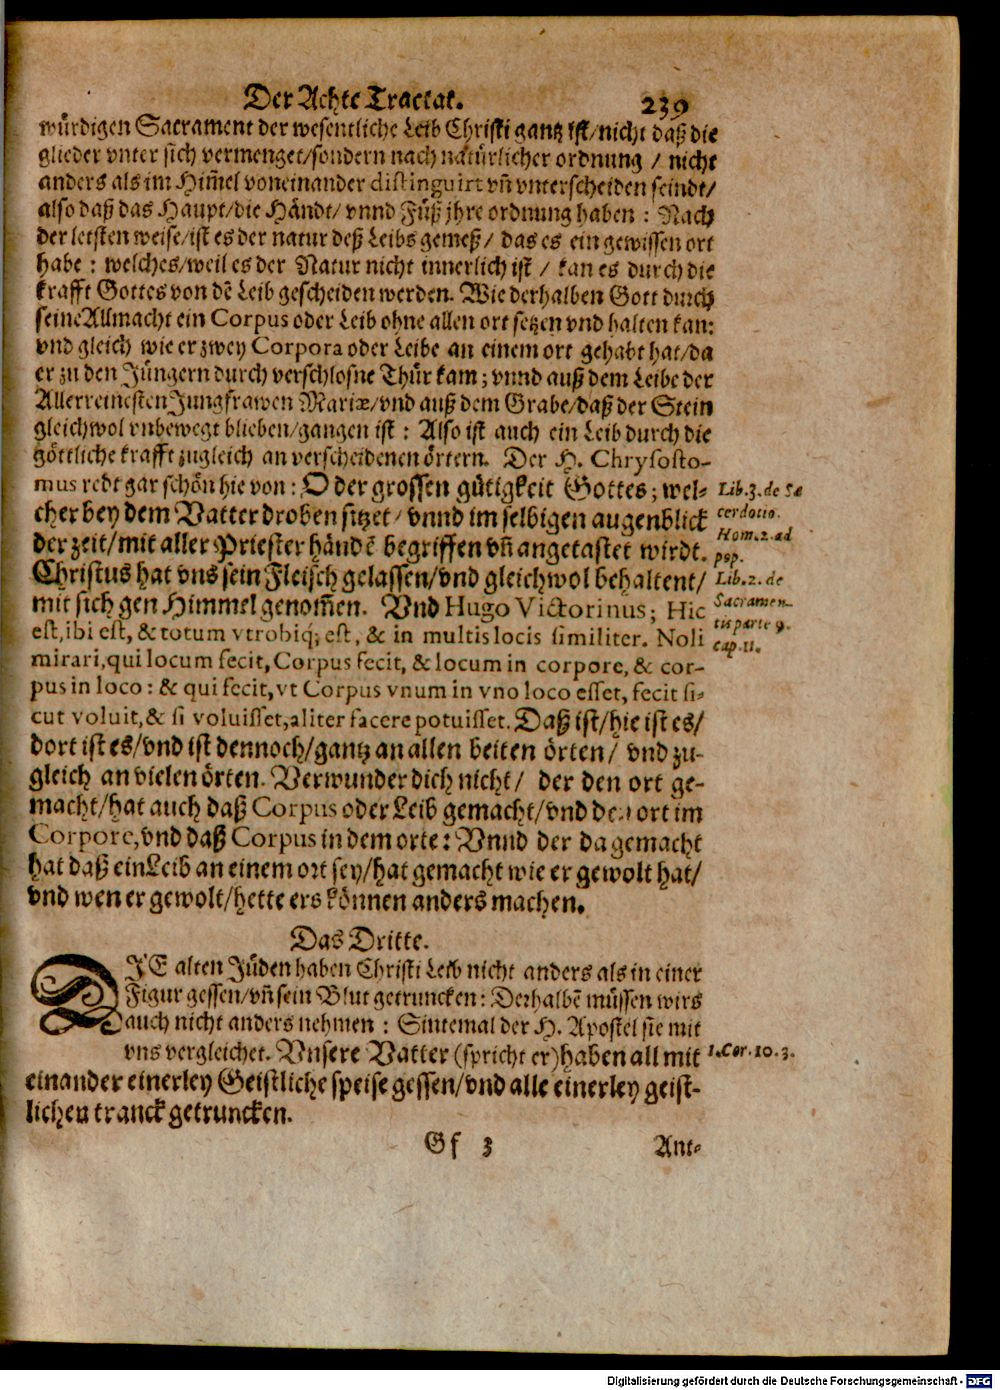 Der Achte Tractat. 239
würdigen Sacrament der wesentliche Leib Christi gantz ist/nicht daß die
glieder vnter sich vermenget/sondern nach natürlicher ordnung / nicht
anders als im Him̃el voneinander distinguirt vñ vnterscheiden seindt/
also daß das Haupt/die Händt/ vnnd Füß jhre ordnung haben : Nach
der letsten weise/ist es der natur deß Leibs gemeß/ das es ein gewissen ort
habe : welches/weil es der Natur nicht innerlich ist / kan es durch die
krafft Gottes von dẽ Leib gescheiden werden. Wie derhalben Gott durch
seine Allmacht ein Corpus oder Leib ohne allen ort setzen vnd halten kan:
vnd gleich wie er zwey Corpora oder Leibe an einem ort gehabt hat/da
er zu den Jüngern durch verschlosne Thür kam; vnnd auß dem Leibe der
Allerreinesten Jungfrawen Mariæ/vnd auß dem Grabe/daß der Stein
gleichwol vnbewegt blieben/gangen ist : Also ist auch ein Leib durch die
göttliche krafft zugleich an verscheidenen örtern. Der H. Chrysosto-
mus redt gar schön hie von : O der grossen gütigkeit Gottes; wel-
cher bey dem Vatter droben sitzet/ vnnd im selbigen augenblick
der zeit/mit aller Priester händẽ begriffen vñ angetastet wirdt.
Christus hat vns sein Fleisch gelassen/vnd gleichwol behaltent/
mit sich gen Himmel genom̃en. Vnd Hugo Victorinus; Hic
est, ibi est, & totum vtrobiq́; est, & in multis locis similiter. Noli
mirari, qui locum fecit, Corpus fecit, & locum in corpore, & cor-
pus in loco : & qui fecit, vt Corpus vnum in vno loco esset, fecit si-
cut voluit, & si voluisset, aliter facere potuisset. Daß ist/hie ist es/
dort ist es/vnd ist dennoch/gantz an allen beiten örten/ vnd zu-
gleich an vielen örten. Verwunder dich nicht/ der den ort ge-
macht/hat auch daß Corpus oder Leib gemacht/vnd den ort im
Corpore, vnd daß Corpus in dem orte : Vnnd der da gemacht
hat daß ein Leib an einem ort sey/hat gemacht wie er gewolt hat/
vnd wen er gewolt/hette ers können anders machen.
Lib. 3. de Sa
cerdotio.
Hom. 2. ad
pop.
Lib. 2. de
Sacramen-
tis parte 9.
cap. 11.
Das Dritte.
DIE alten Jüden haben Christi Leib nicht anders als in einer
Figur gessen/vñ sein Blut getruncken: Derhalbẽ müssen wirs
auch nicht anders nehmen : Sintemal der H. Apostel sie mit
vns vergleichet. Vnsere Vatter (spricht er) haben all mit
einander einerley Geistliche speise gessen/vnd alle einerley geist-
lichen tranck getruncken.
1. Cor. 10. 3.
Gf 3 Ant-
Digitalisierung gefördert durch die Deutsche Forschungsgemeinschaft - DFG